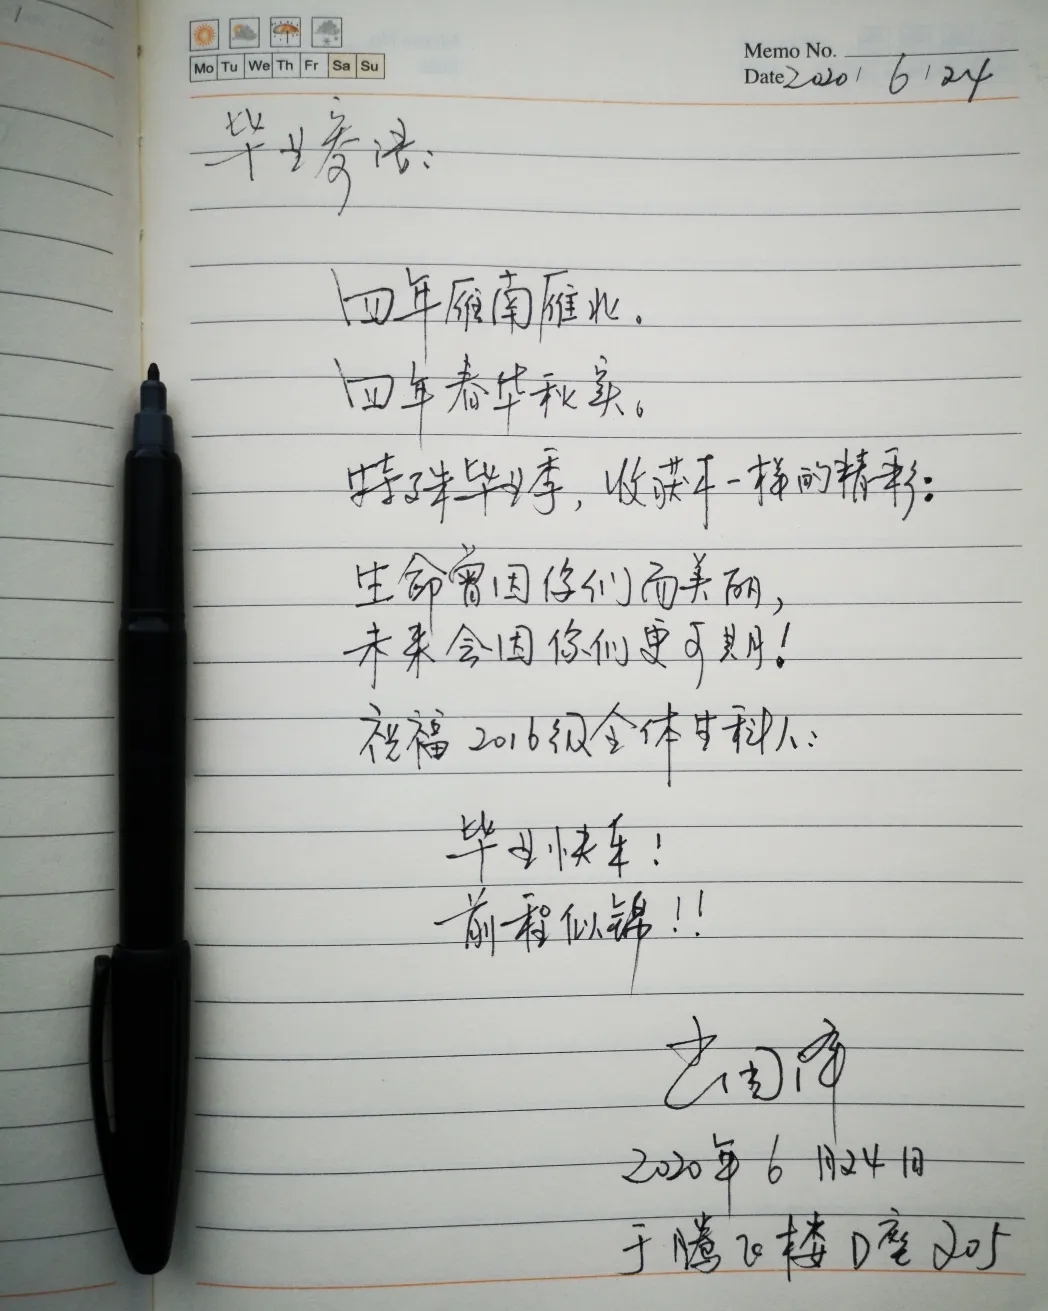 Mo Tu We Th Fr Sa Su
Memo No.
Date 2020 / 6 / 24
毕业寄语:
四年雁南雁北。
四年春华秋实。
特殊毕业季,收获不一样的精彩:
生命曾因你们而美丽,
未来会因你们更可期!
祝福2016级全体生科人:
毕业快乐!
前程似锦!!
2020年6月24日
于腾飞楼D座205